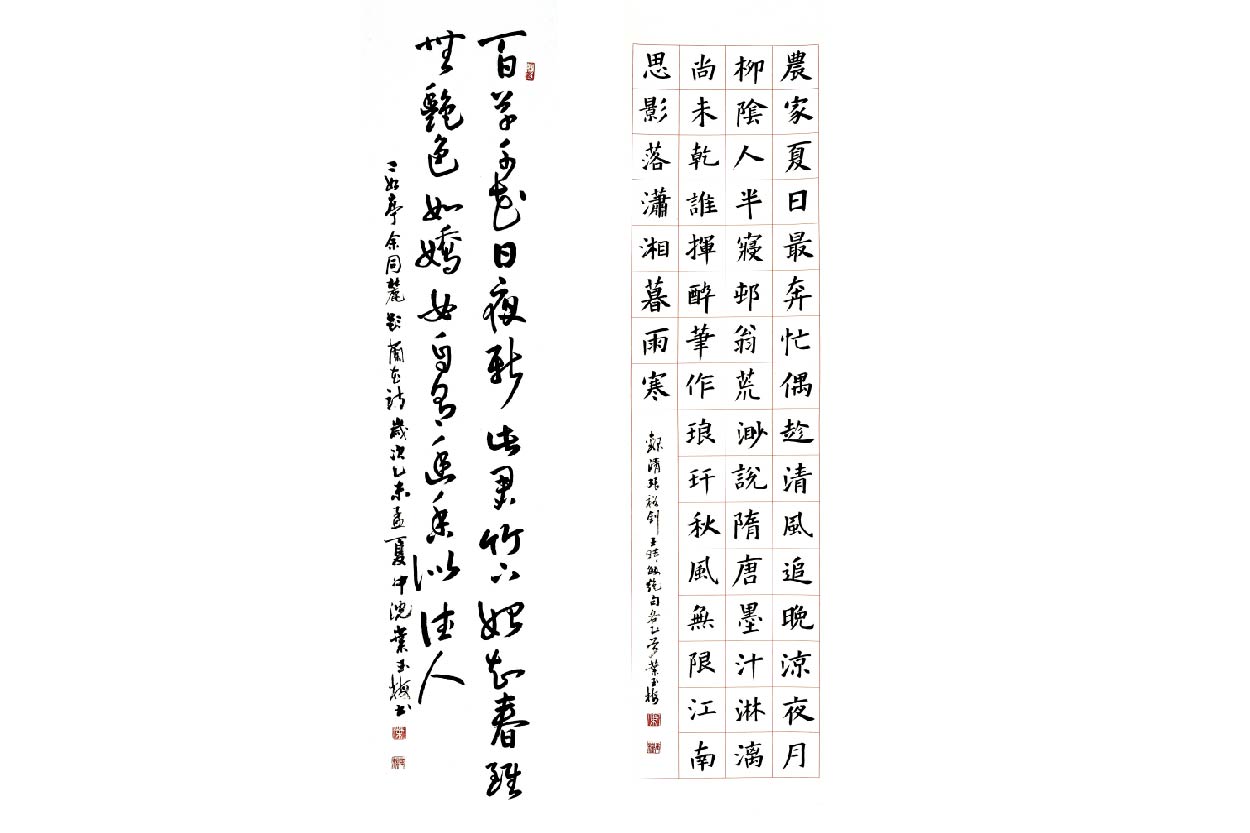 農家夏日最奔忙偶趁清風追晚涼夜月
柳陰人半寢邨翁荒渺說隋唐墨汁淋漓
尚未乾誰揮醉筆作琅玕秋風無限江南
思影落瀟湘暮雨寒
錄清 絕句各乙首葉玉梅
百草千花日夜新此君竹下始知春雖
無艷色如嬌女自有幽香似佳人
二如亭余同麓詠蘭花詩歲次乙未孟夏中浣葉玉梅書